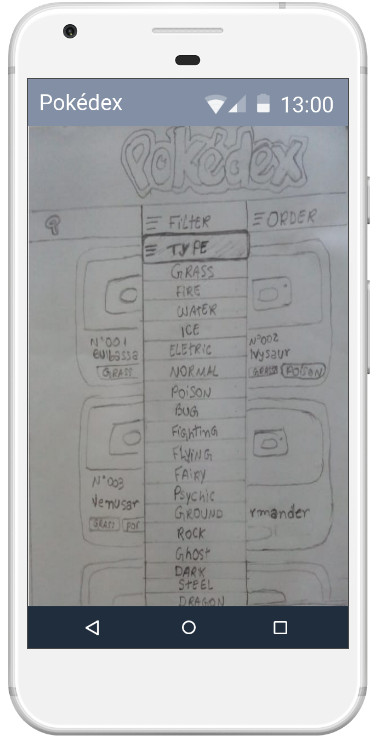 Pokédex 13:00
Pokédex
FILTER
ORDER
TYPE
GRASS
FIRE
WATER
ICE
ELETRIC
NORMAL
POISON
BUG
Fighting
FLYING
FAIRY
Psychic
GROUND
ROCK
Ghost
DARK
STEEL
DRAGON
N°001
Bulbassa
GRASS
N°002
Ivysaur
GRASS POISON
N°003
Venusar
GRASS
rmander